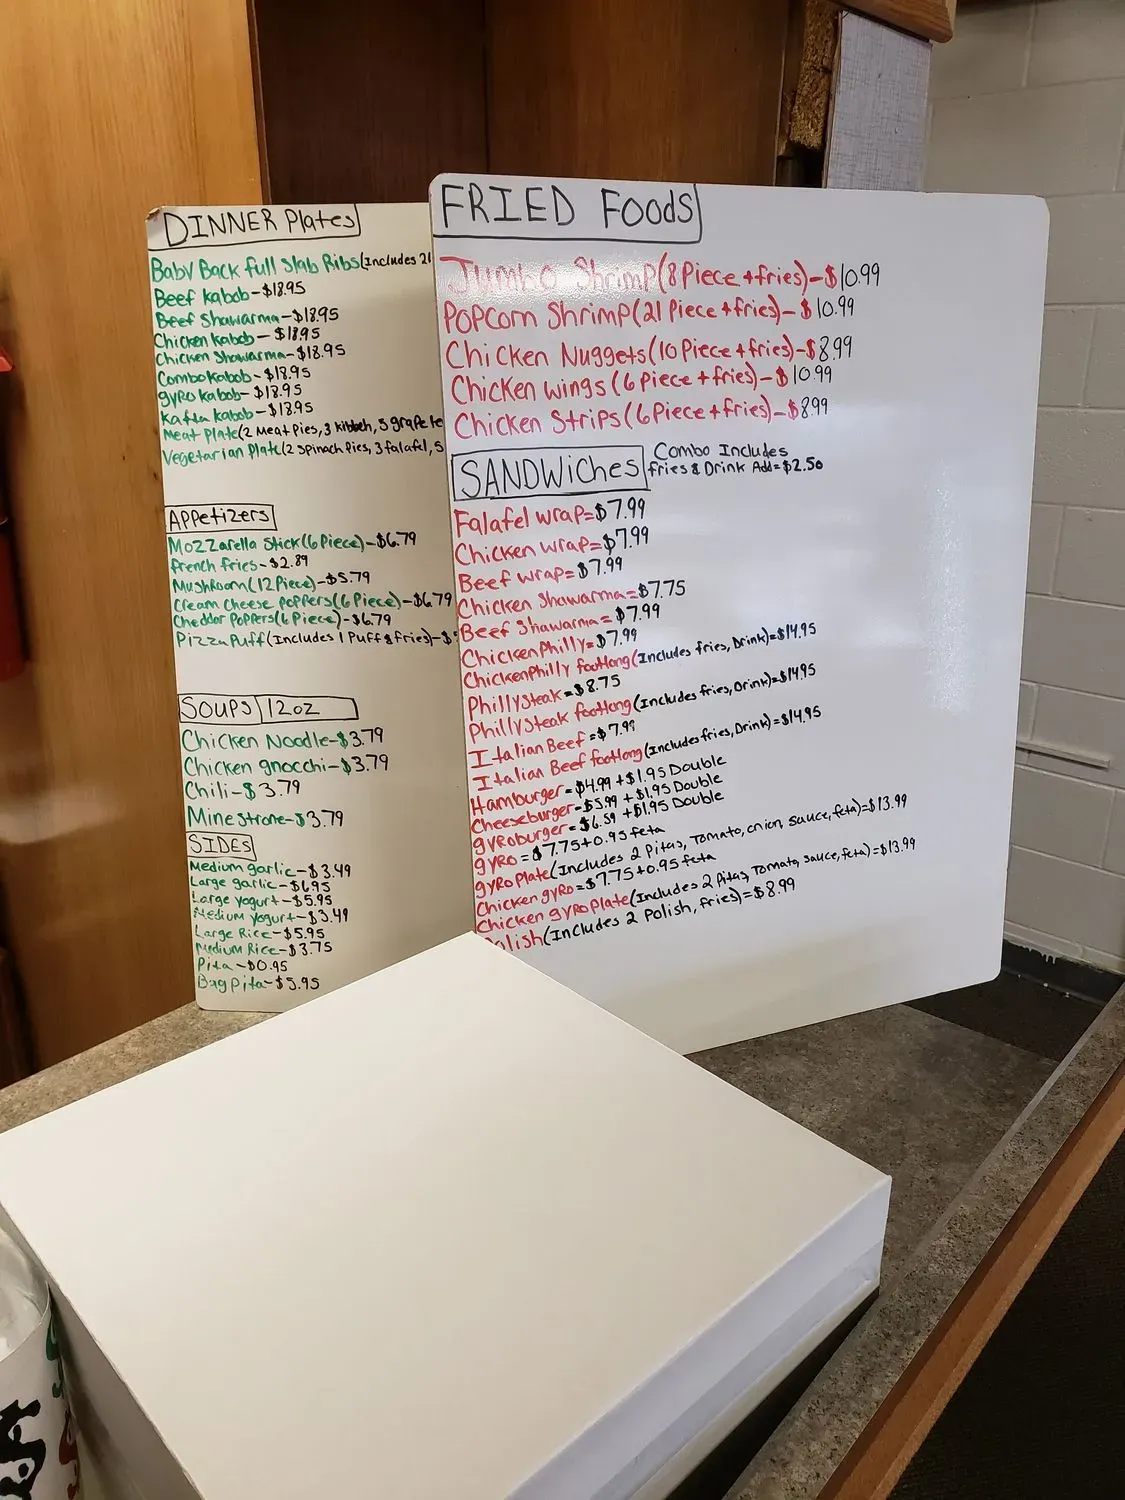 DINNER Plates
Baby Back full Slab Ribs(Includes 2
Beef Kabob-$18.95
Beef Shawarma-$18.95
Chicken Kabob-$18.95
Chicken Shawarma-$18.95
Combo Kabob-$18.95
gyro Kabob-$18.95
Kafta Kabob-$18.95
Meat Plate(2 Meat Pies, 3 Kibbeh, 5 grape le
Vegetarian Plate(2 Spinach Pies, 3 falafel, 5
Appetizers
Mozzarella Stick(6 Piece)-$6.79
french fries-$2.89
Mushroom(12 Piece)-$5.79
Cream Cheese Poppers(6 Piece)-$6.79
Cheddar Poppers(6 Piece)-$6.79
Pizza Puff(Includes 1 Puff & fries)-$
SOUPS 12oz
Chicken Noodle-$3.79
Chicken gnocchi-$3.79
Chili-$3.79
Minestrone-$3.79
SIDES
Medium garlic-$3.49
Large garlic-$6.95
Large yogurt-$5.95
Medium yogurt-$3.49
Large Rice-$5.95
Medium Rice-$3.75
Pita-$0.95
Bag Pita-$5.95
FRIED Foods
Jumbo Shrimp(8 Piece +fries)-$10.99
Popcorn Shrimp(21 Piece +fries)-$10.99
Chicken Nuggets(10 Piece +fries)-$8.99
Chicken wings(6 Piece +fries)-$10.99
Chicken Strips(6 Piece +fries)-$8.99
SANDWiches
Combo Includes
fries & Drink Add=$2.50
Falafel wrap=$7.99
Chicken wrap=$7.99
Beef wrap=$7.99
Chicken Shawarma=$7.75
Beef Shawarma=$7.99
Chicken Philly=$7.99
Chicken Philly footlong(Includes fries, Drink)=$14.95
Philly Steak=$8.75
Philly Steak footlong(Includes fries, Drink)=$14.95
Italian Beef=$7.99
Italian Beef footlong(Includes fries, Drink)=$14.95
Hamburger=$4.99+$1.95 Double
Cheeseburger=$5.99+$1.95 Double
gyroburger=$6.59+$1.95 Double
gyro=$7.75+0.95 feta
gyro Plate(Includes 2 Pitas, Tomato, onion, sauce, feta)=$13.99
Chicken gyro=$7.75+0.95 feta
Chicken gyro Plate(Includes 2 Pitas, Tomato, sauce, feta)=$13.99
Polish(Includes 2 Polish, fries)=$8.99